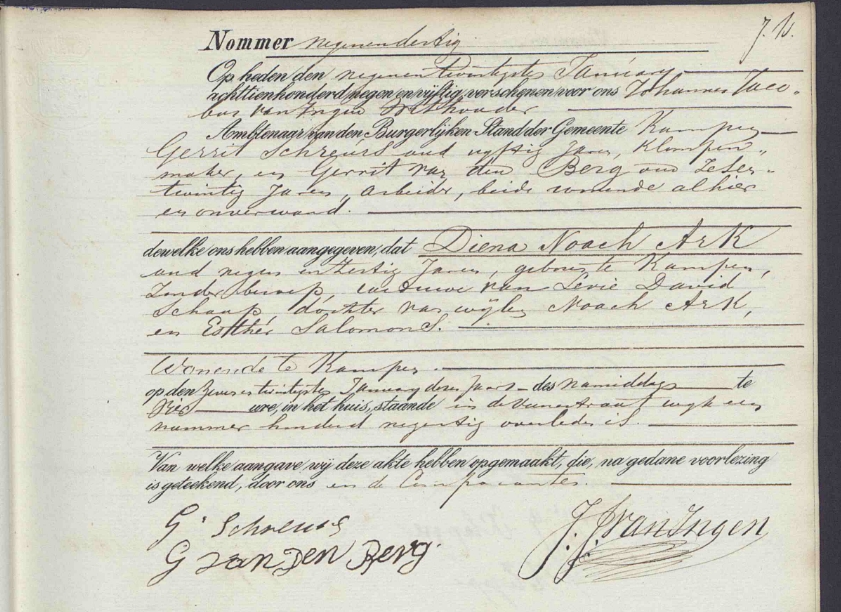 7. V.
Nommer negenendertig
Op heden den negenentwintigste Januarij
achttienhonderd, negen en vijftig, verschenen voor ons Johannes Jaco-
bus van Ingen Wethouder
Ambtenaar van den Burgerlijken Stand der Gemeente Kampen
Gerrit Schreurs oud vijftig Jaren, Klompen-
maker, en Gerrit van den Berg oud Zesen-
twintig Jaren, arbeider, beide wonende alhier
en onverwand.
dewelke ons hebben aangegeven, dat Diena Noach Ark
oud negen en dertig Jaren, geboren te Kampen,
Zonder beroep, weduwe van Levie David
Schaap dochter van wijlen Noach Ark,
en Esther Salomons.
Wonende te Kampen
op den Zevenentwintigste Januarij dezes Jaars des namiddags te
ure, in het huis, staande in de Venestraat wijk een
nummer honderd negentig overleden is.
Van welke aangave wij deze akte hebben opgemaakt, die, na gedane voorlezing
is geteekend, door ons en de Comparanten.
G Schreurs
G van Den Berg.
J. J. van Ingen